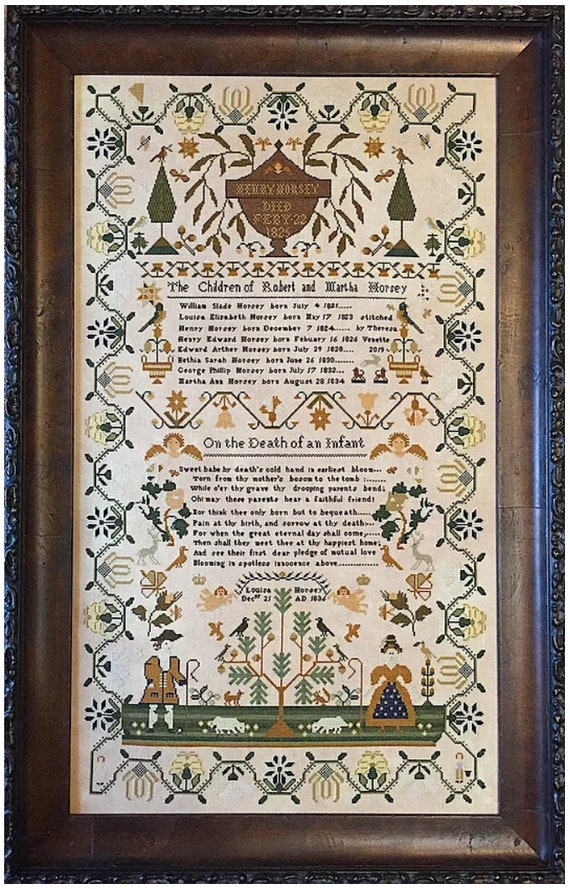 HENRY HORSEY
DIED
FEBY 22
1825
The Children of Robert and Martha Horsey
William Slade Horsey born July 4 1821.....
Louisa Elizabeth Horsey born May 17 1823 stitched
Henry Horsey born December 7 1824..... by Theresa
Henry Edward Horsey born Febuary 16 1826 Venette
Edward Arther Horsey born July 29 1828..... 2019
Bethia Sarah Horsey born June 26 1830.......
George Phillip Horsey born July 17 1832...
Martha Ann Horsey born August 28 1834
On the Death of an Infant
Sweet babe by death's cold hand in earliest bloom...
Torn from thy mother's bosom to the tomb
While o'er thy grave thy drooping parents bend;
Oh! may these parents hear a faithful friend!
For think thee only born but to bequeath.....
Pain at thy birth, and sorrow at thy death
For when the great eternal day shall come
Then shall they meet thee at thy happiest home;
And see their first dear pledge of mutual love
Blooming in spotless innocence above
Louisa Horsey
Decer 21 AD 1836